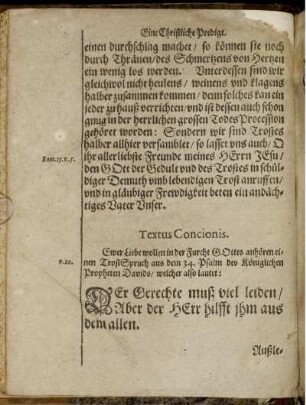 Eine Christliche Predigt.
einen durchschlag machet / so können sie noch
durch Thränen / des Schmertzens von Hertzen
ein wenig los werden. Vnterdessen sind wir
gleichwol nicht heulens / weinens vnd klagens
halber zusammen kommen / denn solches kan ein
jeder zu hauß verrichten / vnd ist dessen auch schon
gnug in der herrlichen grossen Todes Procession
gehöret worden: Sondern wir sind Trostes
halber allhier versamblet / so lasset vns auch / O
Rom. 15. v. 5.
ihr allerliebste Freunde meines HErrn JEsu /
den GOtt der Gedult vnd des Trostes in schül-
diger Demuth vmb lebendigen Trost anruffen /
vnd in gläubiger Frewdigkeit beten ein andäch-
tiges Vater Vnser.
Textus Concionis.
Ewer Liebe wollen in der Furcht GOttes anhören ei-
v. 20.
nen Trost Spruch aus dem 34. Psalm des Königlichen
Propheten Davids / welcher also lautet:
DEr Gerechte muß viel leiden /
Aber der HErr hilfft jhm aus
dem allen.
Außle-